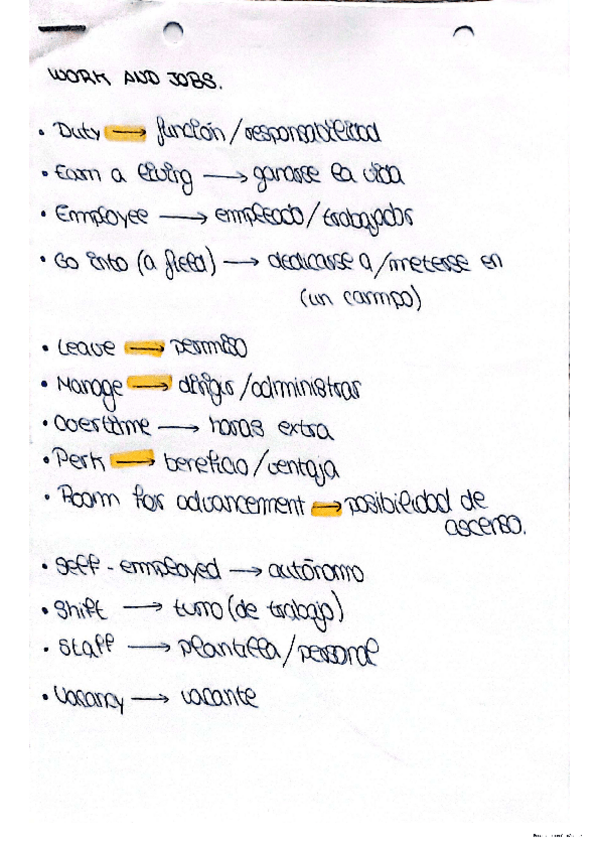 WORK AND JOBS.
• Duty → función/responsabilidad
• Earn a living → ganarse la vida
• Employee → empleado/trabajador
• Go into (a field) → dedicarse a/meterse en
(un campo)
• Leave → permiso
• Manage → dirigir/administrar
• Overtime → horas extra
• Perk → beneficio/ventaja
• Room for advancement → posibilidad de
ascenso.
• Self-employed → autónomo
• Shift → turno (de trabajo)
• Staff → plantilla/personal
• Vacancy → vacante